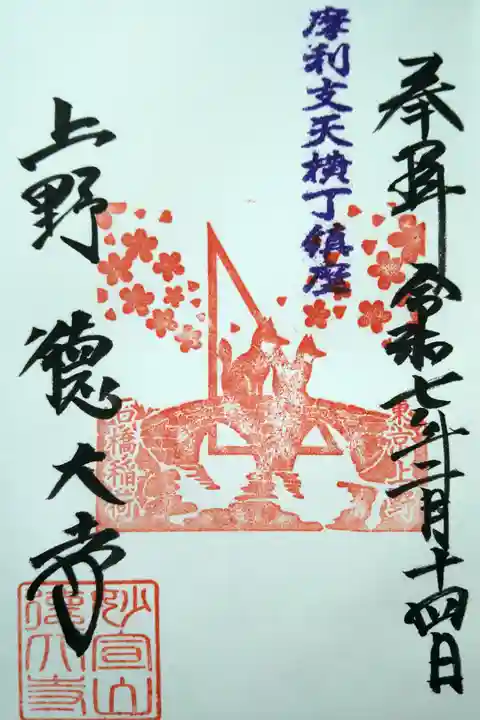 奉拝 令和七年二月十四日
摩利支天横丁鎮座
東京上野
石橋稲荷
上野 德大寺
妙宣山
德大寺